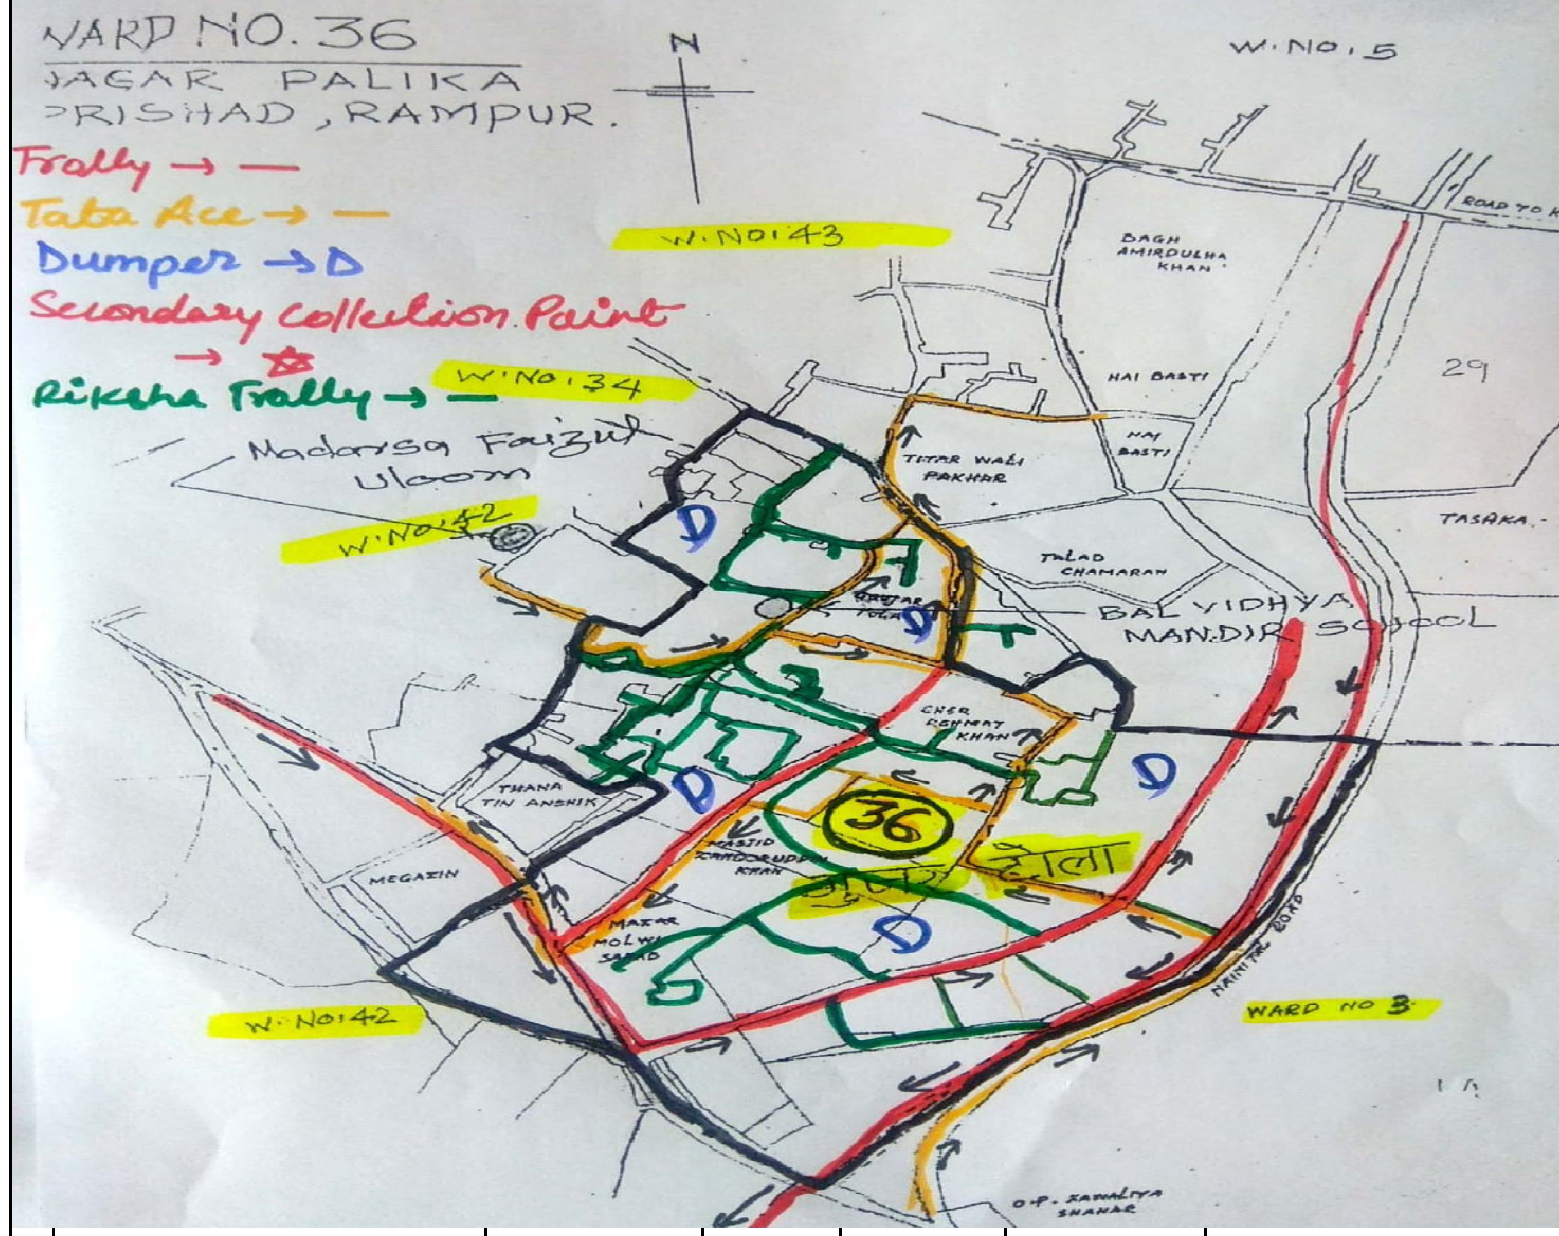 WARD NO. 36
NAGAR PALIKA
PRISHAD, RAMPUR.
N
W. No. 5
Trally → —
Tata Ace → —
Dumper → D
Secondary Collection Point
→ ☆
Riksha Trally → —
W. No. 43
W. No. 34
Madarsa Faizul
Uloom
W. No. 42
ROAD TO
BAGH
AMIRDULHA
KHAN
29
NAI BASTI
NAI
BASTI
TITAR WALI
PAKHAR
TASHKA
TALAB
CHAMARAN
D
D
BAL VIDHYA
MANDIR SCHOOL
CHER
REHMAT
KHAN
THANA
TIN
D
D
36
MASJID
KHAN
MEGAZIN
गुजर टोला
MAZAR
MOLWI
D
NAINITAL ROAD
W. No. 42
WARD NO 3
O.P.
SHAHAR